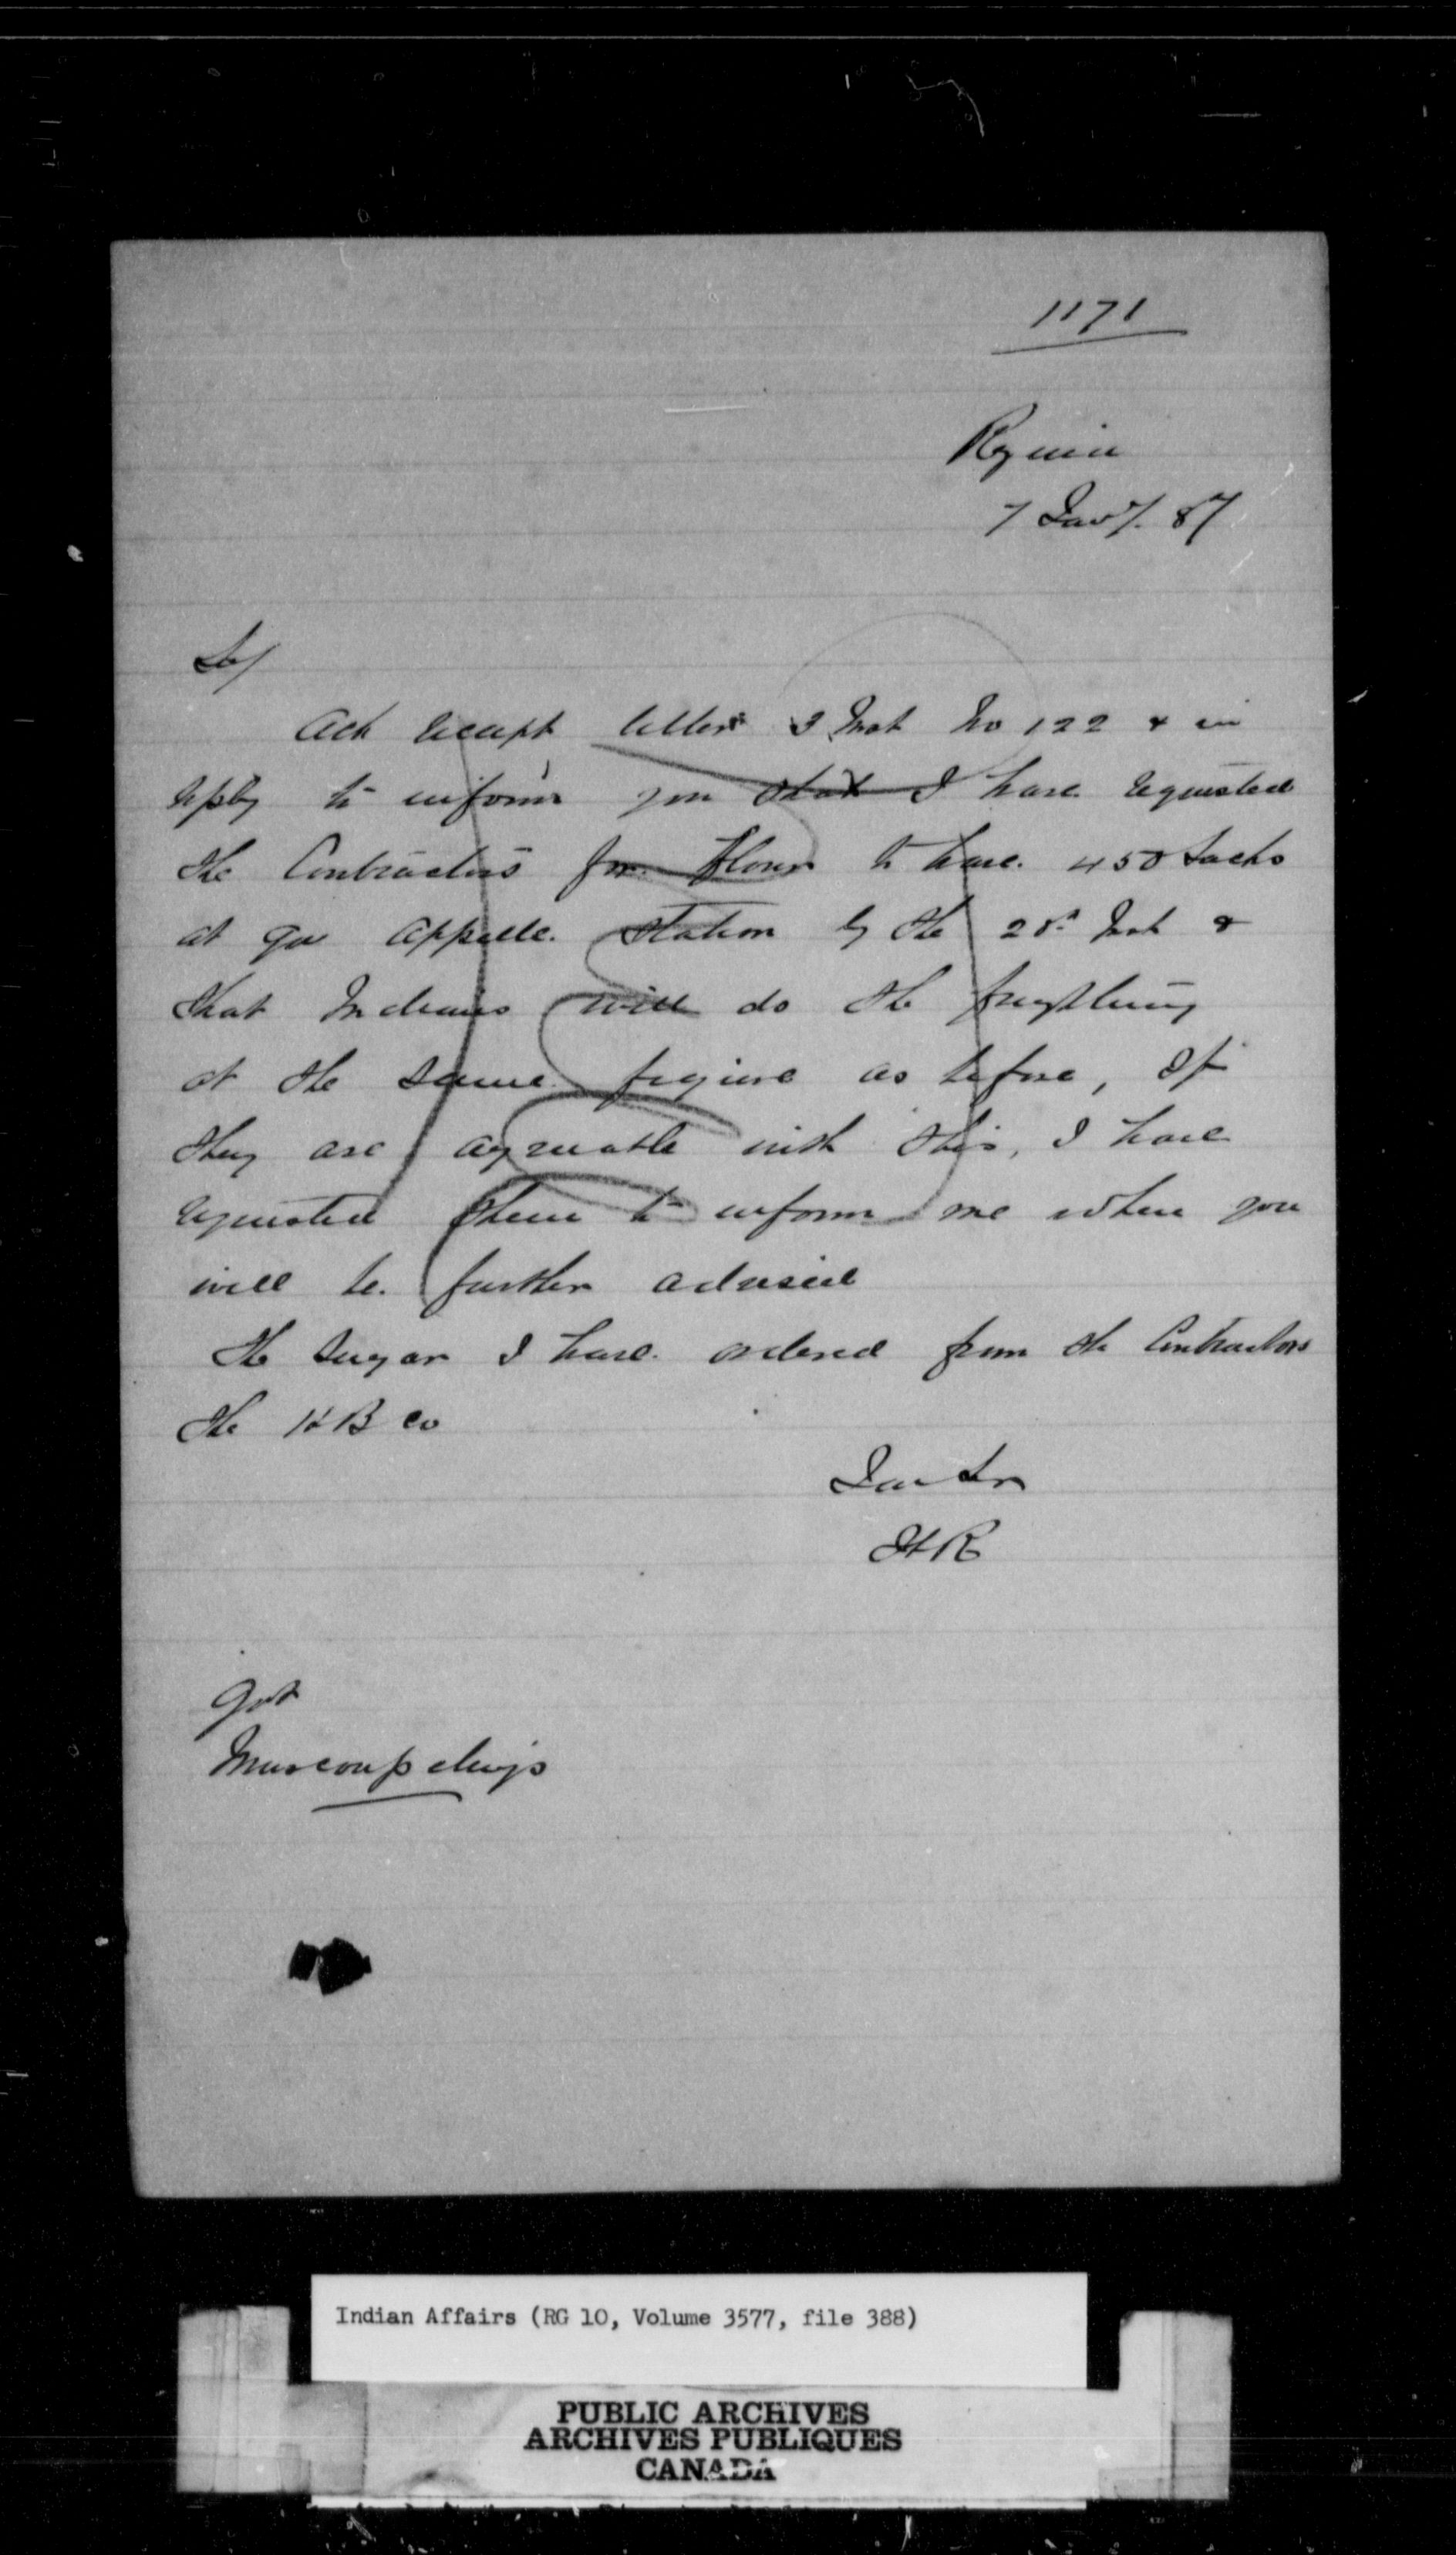 1171
Regina
7 Jany. 87
Sir/
Ack receipt letter 3 Inst No 122 & in
reply to inform you that I have requested
the Contractors for flour to have 450 Sacks
at Qu Appelle Station by the Inst &
that Indians will do the freighting
at the same figure as before, If
they are agreeable with this, I have
requested them to inform me when you
will be further advised
The Sugar I have ordered from the Contractors
the H B Co
HR
Muscowpetungs
Indian Affairs (RG 10, Volume 3577, file 388)
PUBLIC ARCHIVES
ARCHIVES PUBLIQUES
CANADA